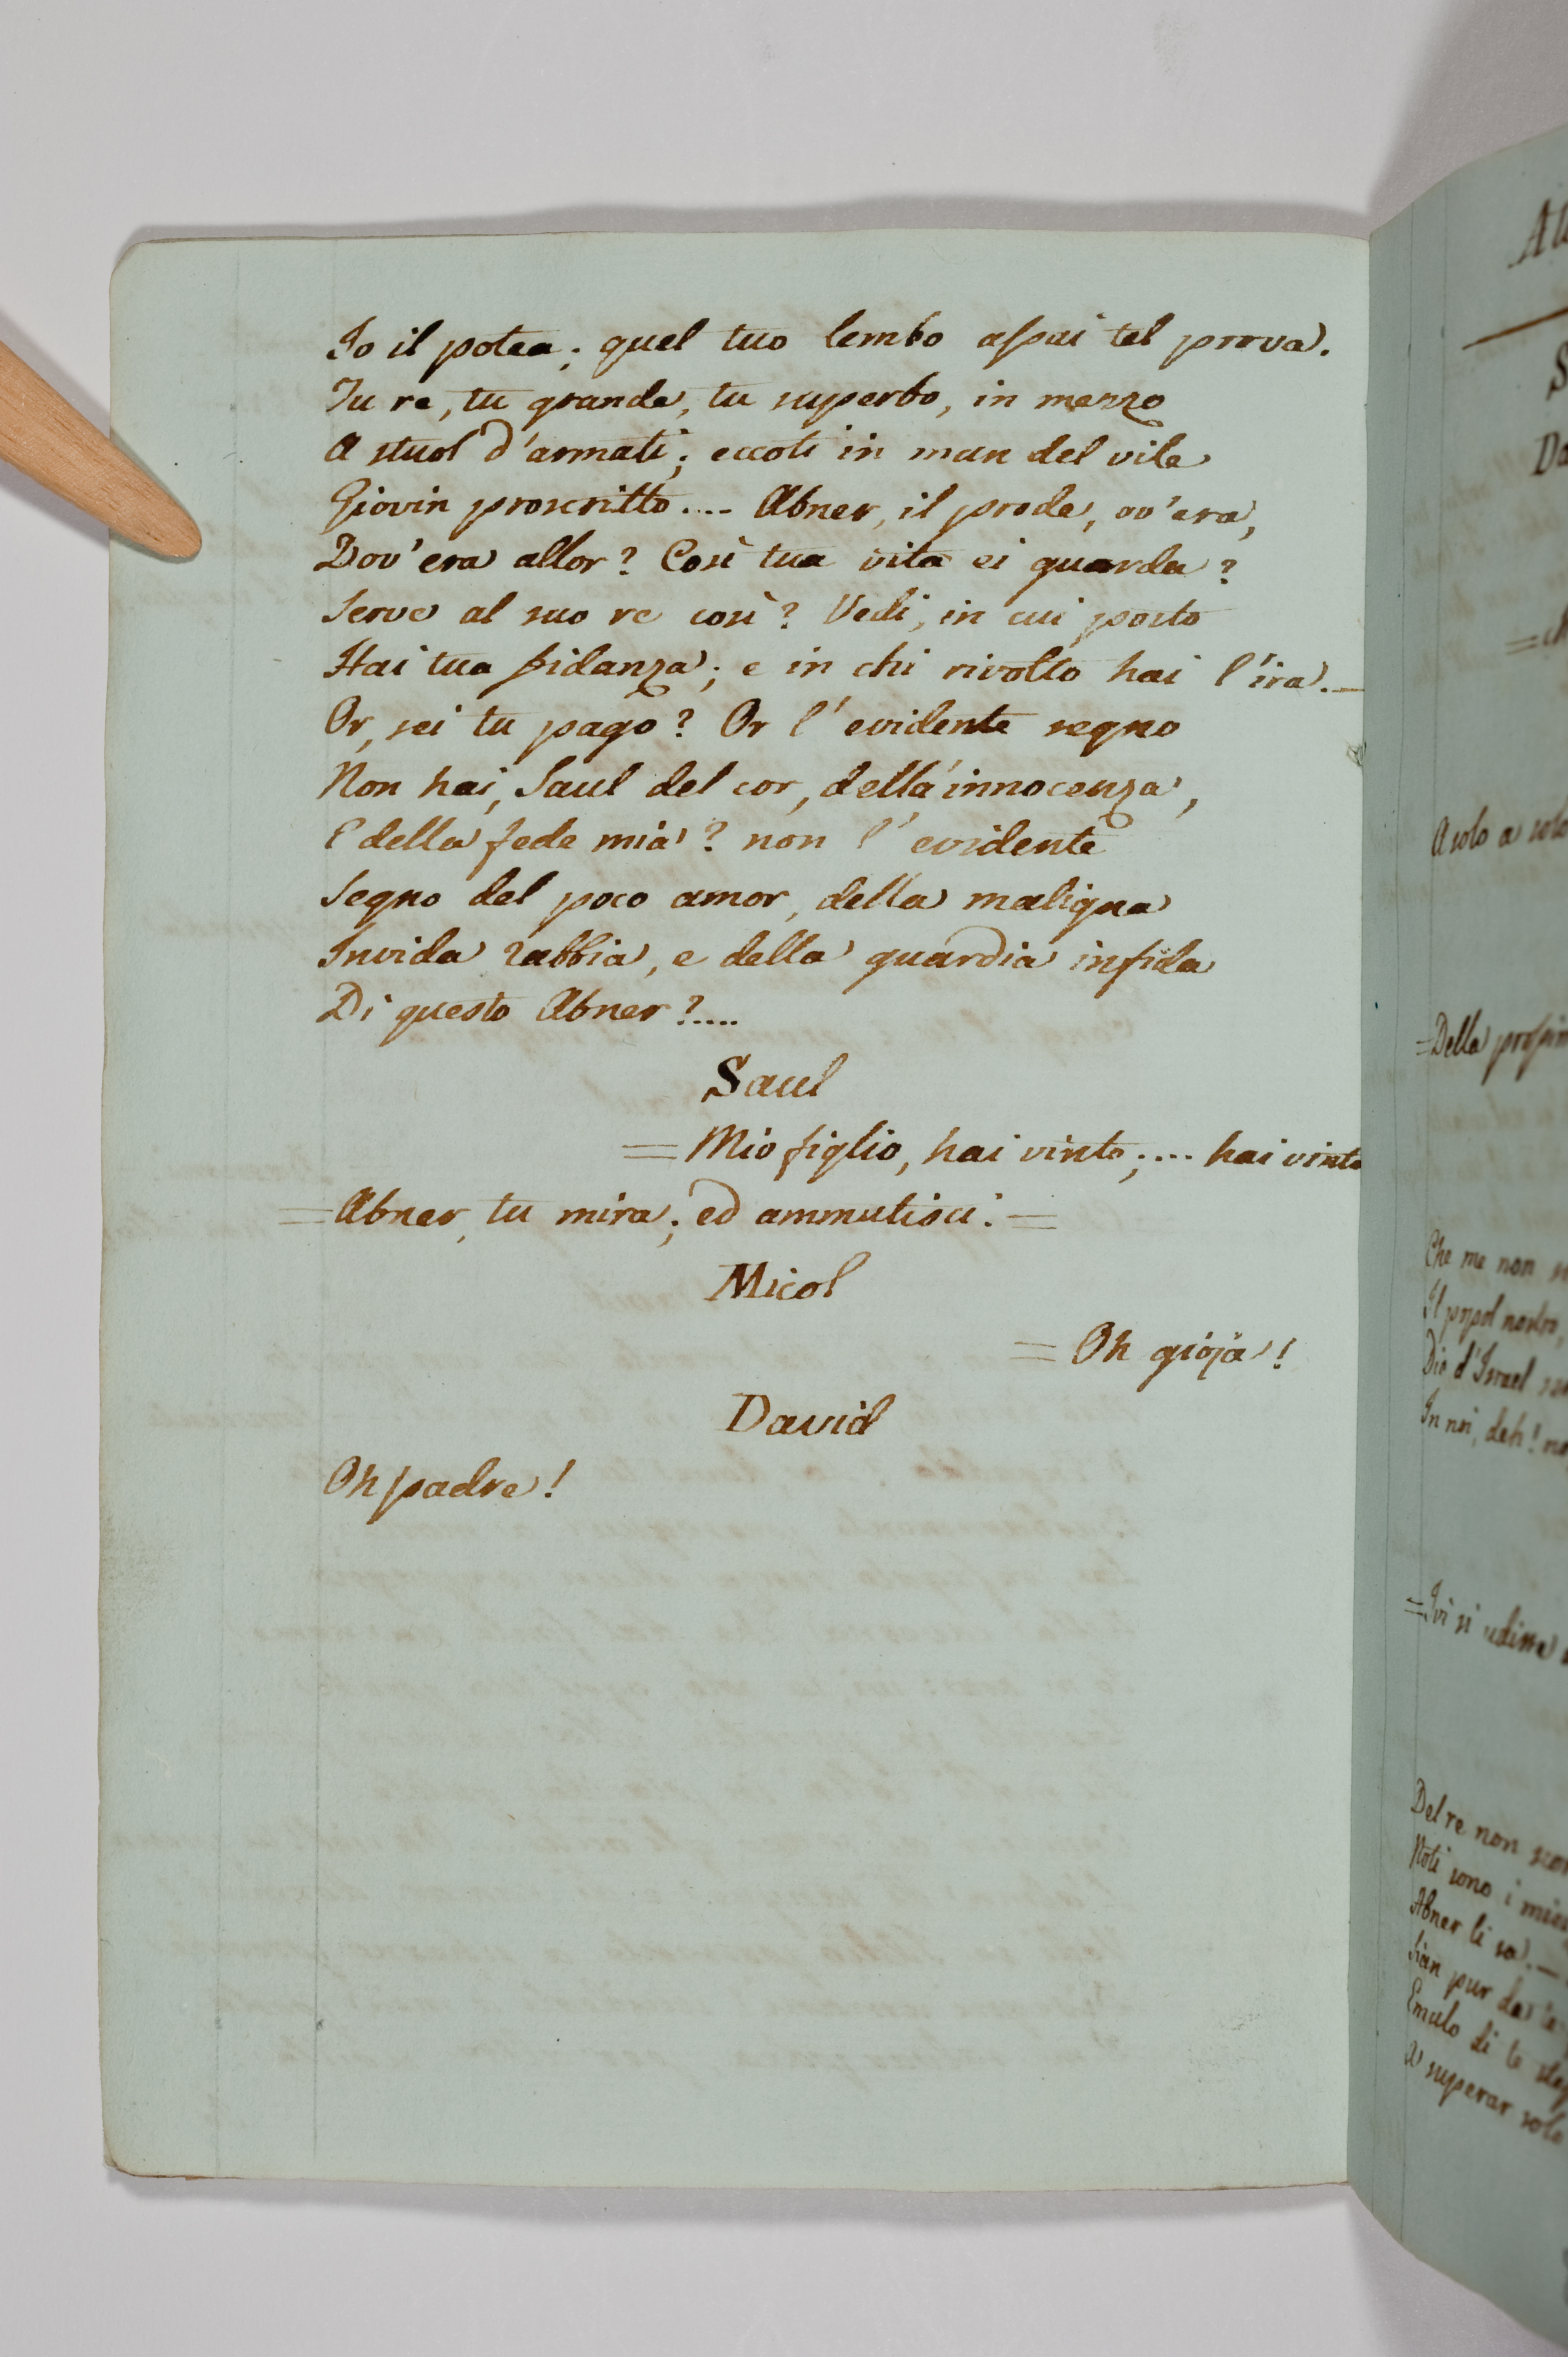 Io il potea; quel tuo lembo assai tel prova.
Tu re, tu grande, tu superbo, in mezzo
A stuol d'armati; eccoti in man del vile
Giovin proscritto.... Abner, il prode, ov'era,
Dov'era allor? Così tua vita ei guarda?
Serve al suo re così? Vedi, in cui posto
Hai tua fidanza; e in chi rivolto hai l'ira.—
Or, sei tu pago? Or l'evidente segno
Non hai, Saul del cor, della innocenza,
E della fede mia? non l'evidente
Segno del poco amor, della maligna
Invida rabbia, e della guardia infida
Di questo Abner?....
Saul
= Mio figlio, hai vinto;.... hai vinto
= Abner, tu mira; ed ammutisci. =
Micol
= Oh gioja!
David
Oh padre!
S
A solo a
= Della
Che me non
Il popol nostro,
Dio d'Israel
In noi, deh!
= Ivi si udisse
Del re non
Noti sono i
Abner li sa.—
Sian pur da
Emulo di te
A superar solo